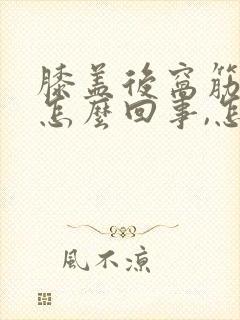 膝盖後窩筋
怎麼回事,怎
風不涼